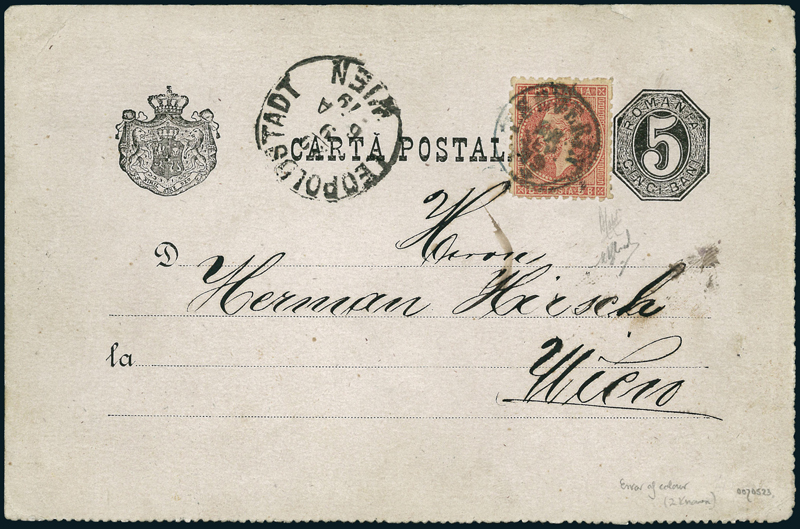 WIEN
LEOPOLDSTADT
CARTĂ POSTALĂ
ROMANIA
5
CINCI BANI
Herrn
D Herman Hirsch
la
Wien
Error of colour
(2 known)
0070523